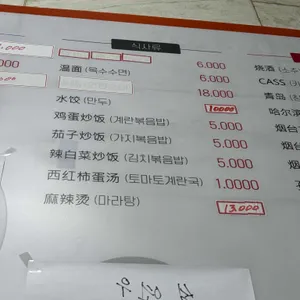 식사류
温面 (옥수수면) 6.000
6.000
18.000
水饺 (만두) 10000
鸡蛋炒饭 (계란볶음밥) 5.000
茄子炒饭 (가지볶음밥) 5.000
辣白菜炒饭 (김치볶음밥) 5.000
西红柿蛋汤 (토마토계란국) 1.0000
麻辣烫 (마라탕) 13.000
烧酒 (소주
CASS
青岛
哈尔滨
烟台
烟台
烟